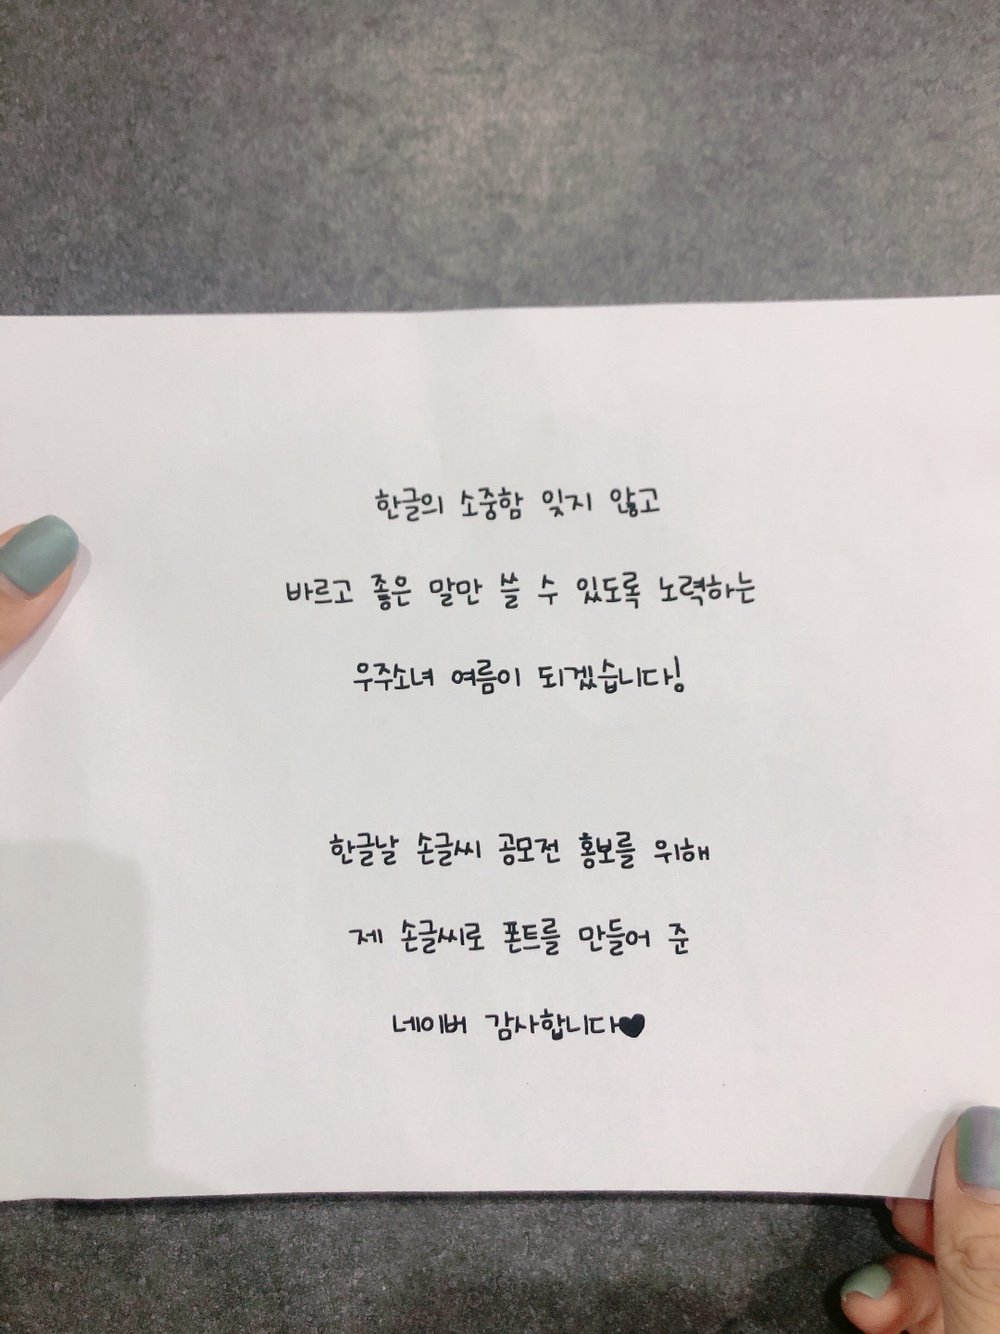 한글의 소중함 잊지 않고
바르고 좋은 말만 쓸 수 있도록 노력하는
우주소녀 여름이 되겠습니다!
한글날 손글씨 공모전 홍보를 위해
제 손글씨로 폰트를 만들어 준
네이버 감사합니다♥